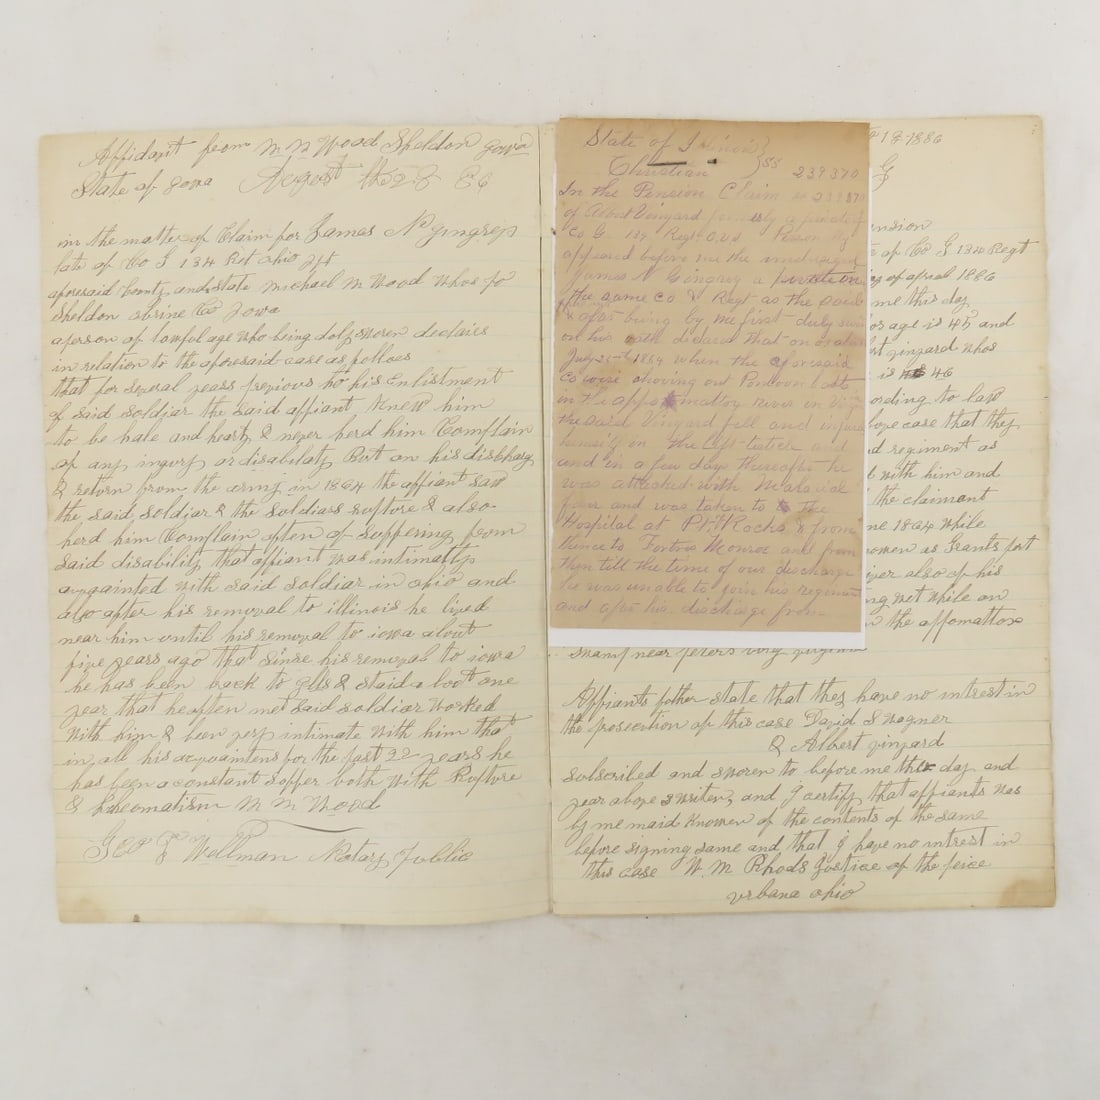 Affidant from M N Wood Sheldon Iowa
State of Iowa August the 28 86
in the matter of Claim for James N
late of Co G 134 Ret ohio
aforesaid County and State Michael M Wood Whos po
Sheldon obrine Co Iowa
a person of lawful age who being doly sworen declairs
in relation to the aforesaid case as folloes
that for several years previous to his Enlistment
of said soldiar the said affiant Knew him
to be hale and hearty & never herd him Complain
of any ingury or disabilaty But on his discharg
& return from the army in 1864 the affiant saw
the said soldiar & the soldiars rupture & also
herd him Complain often of suffering from
said disability that affiant was intimatly
aquainted with said soldiar in ohio and
also after his removal to illinois he lived
near him until his removal to iowa about
five years ago that sinse his removal to iowa
he has been back to Ills & staid a boot one
year that he often met said soldiar Worked
With him & been very intimate with him tha
in all his acquaintens for the past 22 years he
has been a constant soffer both with Rupture
& Rheomatism M M Wood
Geo Wellman Notary Public
State of Illinois
Christian SS 239370
In the Pension Claim 239870
of Albert Vinyard formerly a private of
Co G. 134 Regt O.V.I Person
appeared before me the undersigned
James N Gingrey a private in
the same Co & Regt as the said
& after being by me first duly
on his oath declares that on or about
July 22nd 1864 when the aforesaid
Co were shoving out Pontoon boats
in the appomattox river in
the said Vinyard fell and injured
himself in the left testee and
and in a few days thereafter he
was attacked with Malarial
fever and was taken to the
Hospital at Pt of Rocks & from
thence to Fortres Monroe and from
then till the time of our discharge
he was unable to join his regiment
and after his discharge from
18-1886
G
ension
of Co G 134 Regt
of april 1886
me this day
age is 45 and
whos
is 46
ording to law
case that they
d regiment as
with him and
the claimant
1864 while
nowen as Grants fort
iver also of his
not while on
the affomattox
swamp near
Affiants father state that they have no intrest in
the prosecution of this case David S Wagner
& Albert Vinyard
Subscribed and sworen to before me this day and
year above writen, and I certify that affiants was
by me maid Knowen of the contents of the same
before signing same and that I have no intrest in
this case W. M. Rhods Justice of the peice
urbana ohio